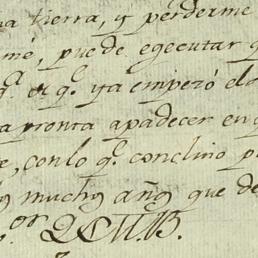 tierra, y perderme
puede egecutar
q.e ya empezó el
pronta apadecer en
con lo q.e concluio
muchos años que de
or QSMB.